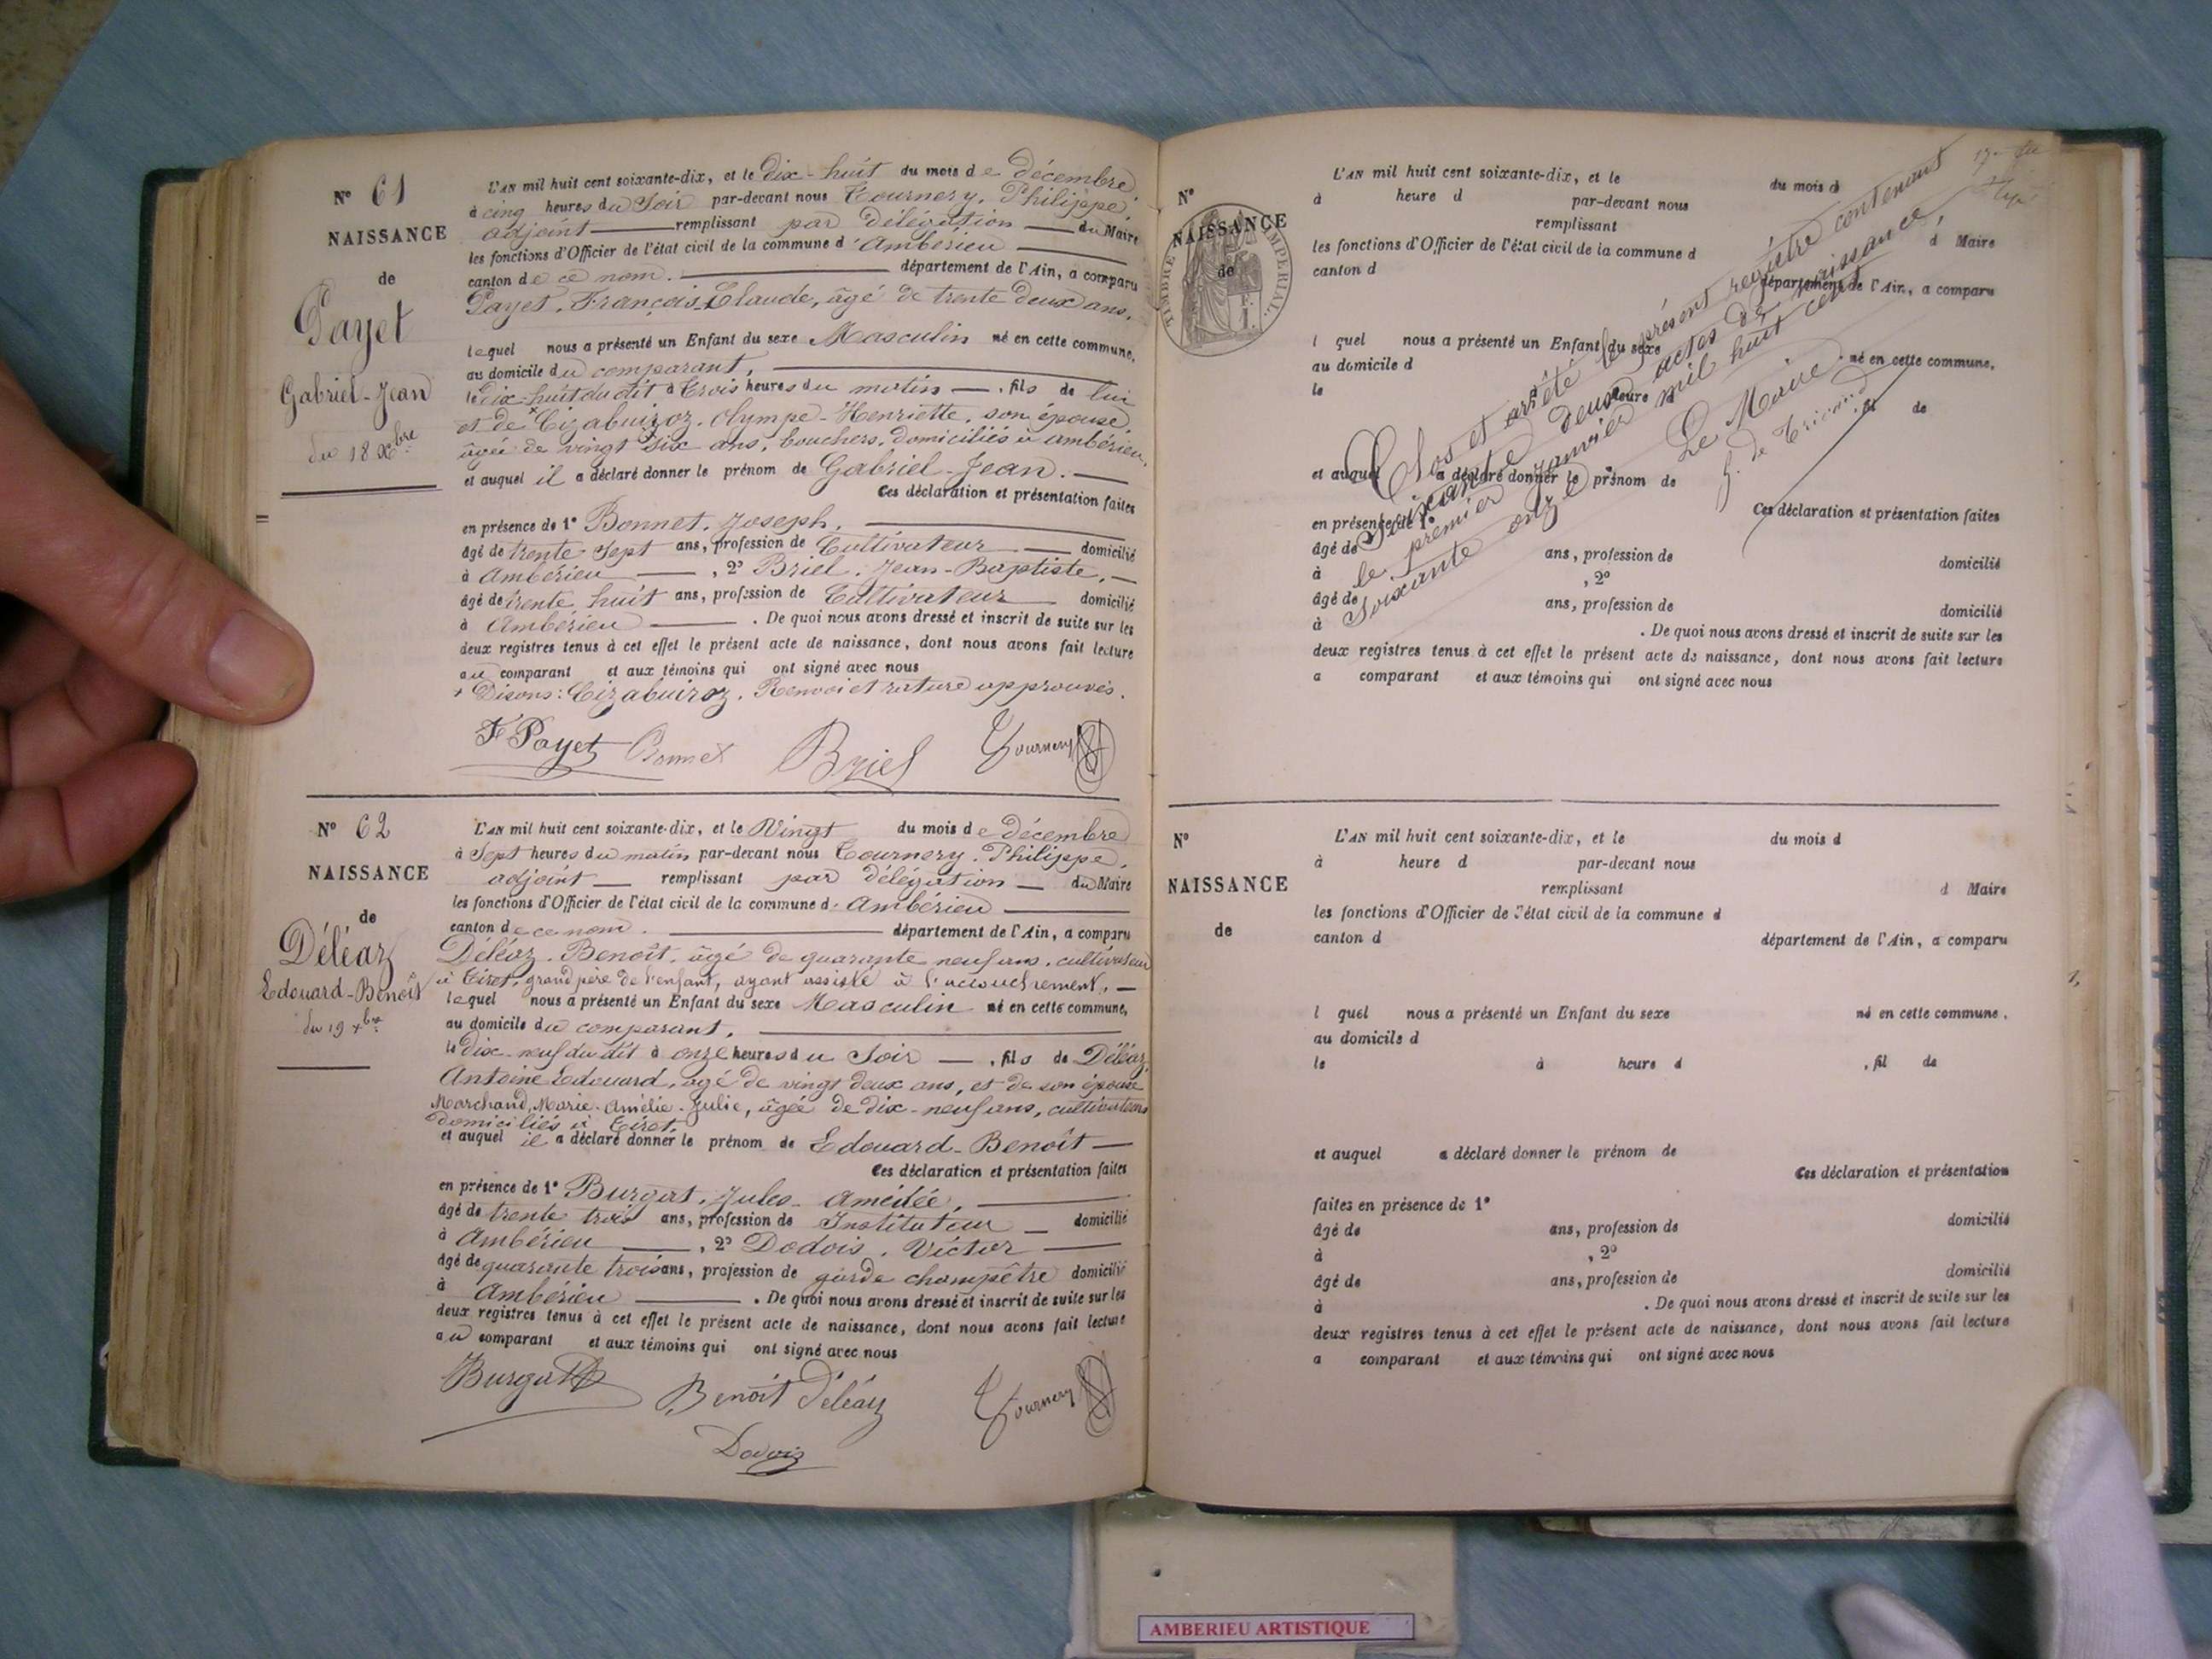 N° 61
NAISSANCE
de
Payet
Gabriel-Jean
du 18 Xbre
L'AN mil huit cent soixante-dix, et le Dix-huit du mois de Décembre
à cinq heures du Soir par-devant nous Tournery, Philippe,
adjoint remplissant par délégation du Maire
les fonctions d'Officier de l'état civil de la commune d'Ambérieu
canton de ce nom. département de l'Ain, a comparu
Payet, François-Claude, âgé de trente deux ans,
lequel nous a présenté un Enfant du sexe Masculin né en cette commune,
au domicile du comparant,
le Dix-huit du dit à trois heures du matin, fils de lui
et de Olympe-Henriette, son épouse,
âgée de vingt six ans, bouchers, domiciliés à ambérieu,
et auquel il a déclaré donner le prénom de Gabriel-Jean.
Ces déclaration et présentation faites
en présence de 1° Bonnet, Joseph,
âgé de trente Sept ans, profession de Cultivateur domicilié
à Ambérieu, 2° Briel, Jean-Baptiste,
âgé de trente huit ans, profession de Cultivateur domicilié
à Ambérieu. De quoi nous avons dressé et inscrit de suite sur les
deux registres tenus à cet effet le présent acte de naissance, dont nous avons fait lecture
au comparant et aux témoins qui ont signé avec nous
+ Disons: Cizabuiroz. Renvoi et rature approuvés.
F Payet Bonnet Briel Tournery
N° 62
NAISSANCE
de
Déléaz
Edouard-Benoît
du 19 xbre
L'AN mil huit cent soixante-dix, et le Vingt du mois de Décembre
à Sept heures du matin par-devant nous Tournery, Philippe,
adjoint remplissant par délégation du Maire
les fonctions d'Officier de l'état civil de la commune d'Ambérieu
canton de ce nom. département de l'Ain, a comparu
Déléaz, Benoît, âgé de quarante neuf ans, cultivateur
à Tiret, grand père de l'enfant, ayant assisté à l'accouchement,
lequel nous a présenté un Enfant du sexe Masculin né en cette commune,
au domicile du comparant,
le Dix-neuf du dit à onze heures du Soir, fils de Déléaz,
Antoine Edouard, âgé de vingt deux ans, et de son épouse
Marchand, Marie-Amélie-Julie, âgée de dix-neuf ans, cultivateurs
domiciliés à Tiret,
et auquel il a déclaré donner le prénom de Edouard-Benoît
Ces déclaration et présentation faites
en présence de 1° Burgat, Jules-Amédée,
âgé de trente trois ans, profession de Instituteur domicilié
à Ambérieu, 2° Dodois, Victor
âgé de quarante trois ans, profession de garde champêtre domicilié
à Ambérieu. De quoi nous avons dressé et inscrit de suite sur les
deux registres tenus à cet effet le présent acte de naissance, dont nous avons fait lecture
au comparant et aux témoins qui ont signé avec nous
Burgat Benoît Déléaz Tournery
Dodois
N°
NAISSANCE
de
TIMBRE IMPERIAL.
L'AN mil huit cent soixante-dix, et le du mois d
à heure d par-devant nous
remplissant d Maire
les fonctions d'Officier de l'état civil de la commune d
canton d département de l'Ain, a comparu
l quel nous a présenté un Enfant du sexe né en cette commune,
au domicile d
le à heure d , fil de
et auquel a déclaré donner le prénom de
Ces déclaration et présentation faites
en présence de 1°
âgé de ans, profession de domicilié
à , 2°
âgé de ans, profession de domicilié
à . De quoi nous avons dressé et inscrit de suite sur les
deux registres tenus à cet effet le présent acte de naissance, dont nous avons fait lecture
a comparant et aux témoins qui ont signé avec nous
Clos et arrêté le présent registre contenant
Soixante deux actes de naissance,
le premier janvier mil huit cent
Soixante onze
Le Maire
N°
NAISSANCE
de
L'AN mil huit cent soixante-dix, et le du mois d
à heure d par-devant nous
remplissant d Maire
les fonctions d'Officier de l'état civil de la commune d
canton d département de l'Ain, a comparu
l quel nous a présenté un Enfant du sexe né en cette commune,
au domicile d
le à heure d , fil de
et auquel a déclaré donner le prénom de
Ces déclaration et présentation
faites en présence de 1°
âgé de ans, profession de domicilié
à , 2°
âgé de ans, profession de domicilié
à . De quoi nous avons dressé et inscrit de suite sur les
deux registres tenus à cet effet le présent acte de naissance, dont nous avons fait lecture
a comparant et aux témoins qui ont signé avec nous
AMBERIEU ARTISTIQUE